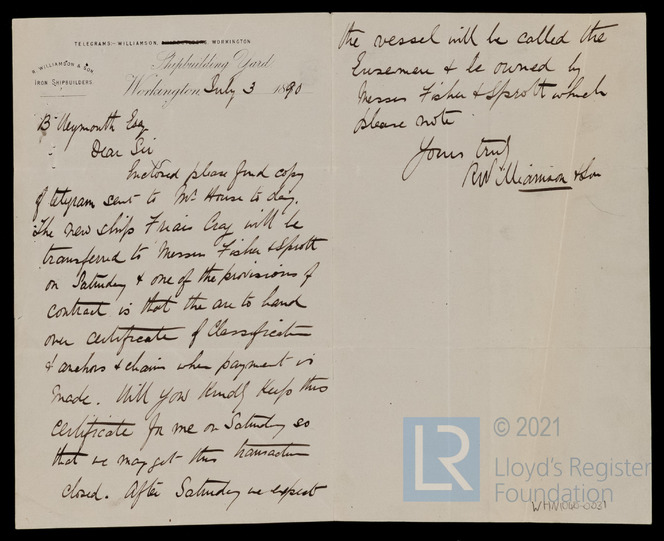 TELEGRAMS:- WILLIAMSON, WORKINGTON
R. WILLIAMSON & SON
IRON SHIPBUILDERS.
Shipbuilding Yard
Workington, July 3 1890
B Waymouth Esq
Dear Sir
Enclosed please find copy
of telegram sent to Mr House to day.
The new ship Friars Crag will be
transferred to Messrs Fisher & Sprott
on Saturday & one of the provisions of
contract is that the are to hand
over certificate of Classification
& anchors & chains when payment is
made. Will you kindly keep this
certificate for me on Saturday so
that we may get this transaction
closed. After Saturday we expect
the vessel will be called the
Eusemere & be owned by
Messrs Fisher & Sprott which
please note
Yours truly
R Williamson & Son
LR
© 2021
Lloyd's Register
Foundation